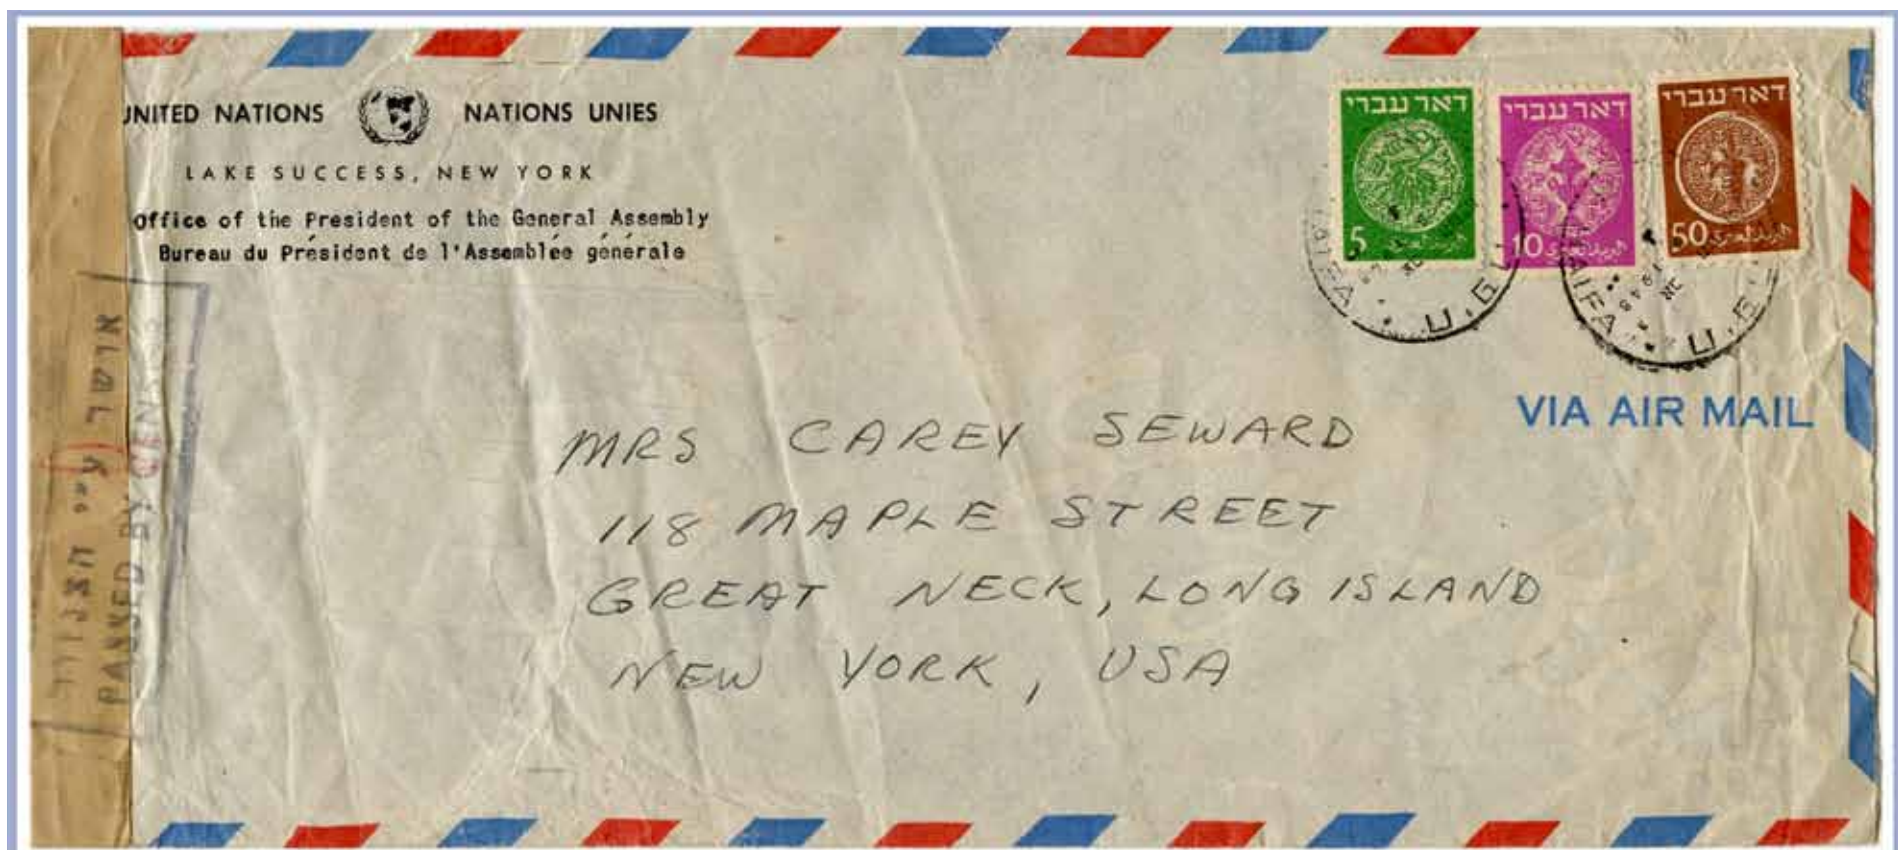 UNITED NATIONS NATIONS UNIES
LAKE SUCCESS, NEW YORK
Office of the President of the General Assembly
Bureau du Président de l'Assemblée générale
דאר עברי
5
דאר עברי
10
דאר עברי
50
HAIFA
1948
VIA AIR MAIL
MRS CAREY SEWARD
118 MAPLE STREET
GREAT NECK, LONG ISLAND
NEW YORK, USA
אושר ע״י הצנזורה
PASSED BY CENSOR